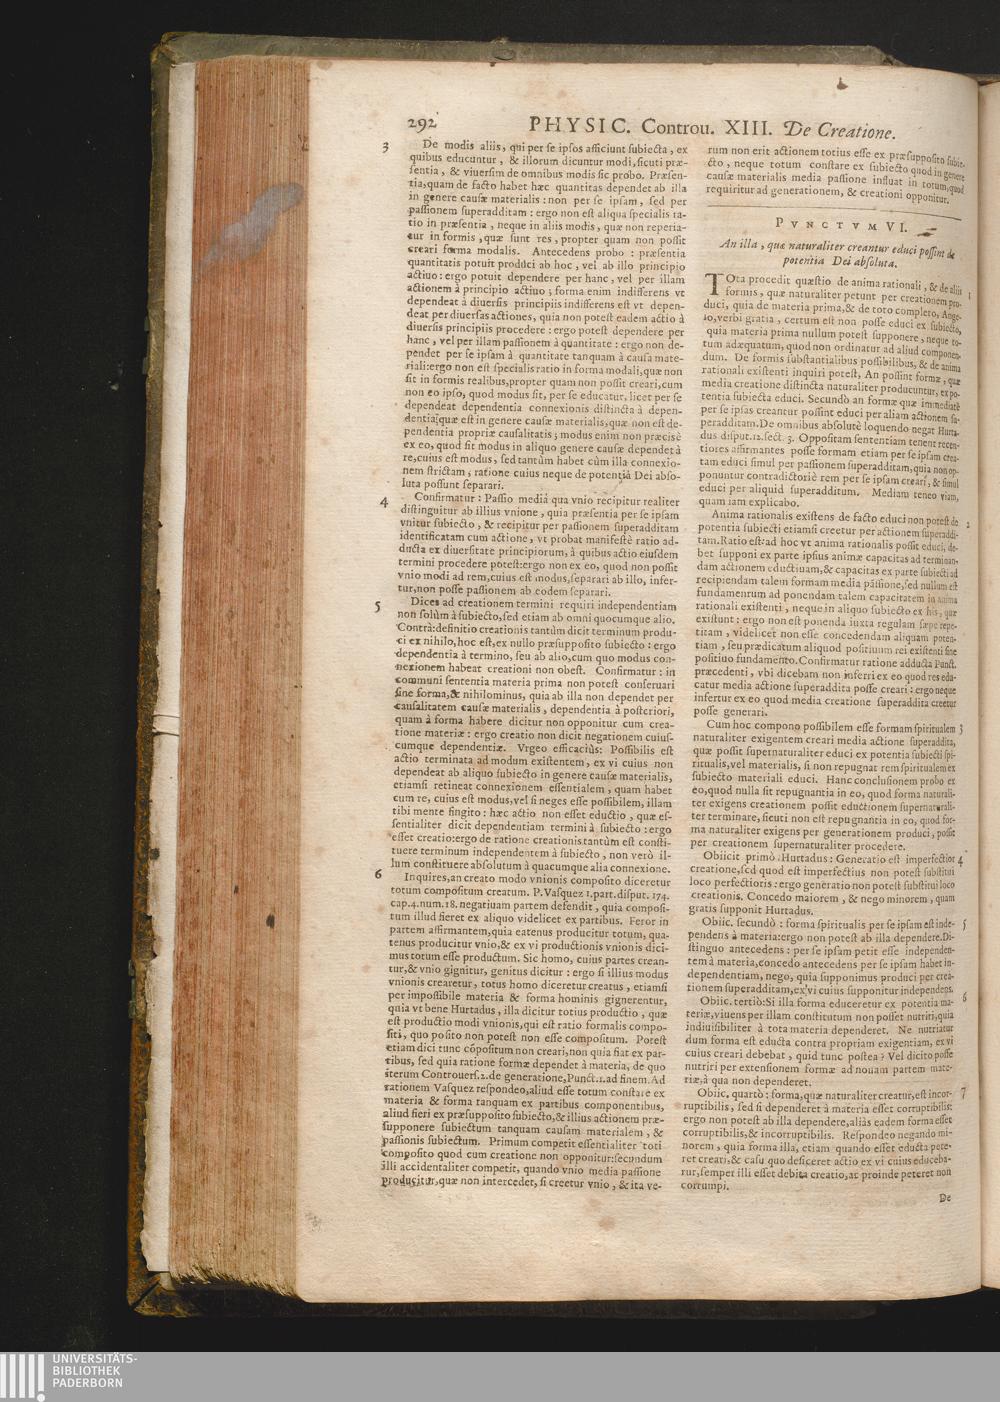 292
PHYSIC. Controu. XIII. De Creatione.
3 De modis aliis, qui per se ipsos afficiunt subiecta, ex
quibus educuntur, & illorum dicuntur modi, sicuti præ-
sentia, & viuersim de omnibus modis sic probo. Præsen-
tia, quam de facto habet hæc quantitas dependet ab illa
in genere causæ materialis: non per se ipsam, sed per
passionem superadditam: ergo non est aliqua specialis ra-
tio in præsentia, neque in aliis modis, quæ non reperia-
tur in formis, quæ sunt res, propter quam non possit
creari forma modalis. Antecedens probo: præsentia
quantitatis potuit produci ab hoc, vel ab illo principio
actiuo: ergo potuit dependere per hanc, vel per illam
actionem à principio actiuo; forma enim indifferens vt
dependeat à diuersis principiis indifferens est vt depen-
deat per diuersas actiones, quia non potest eadem actio à
diuersis principiis procedere: ergo potest dependere per
hanc, vel per illam passionem à quantitate: ergo non de-
pendet per se ipsam à quantitate tanquam à causa mate-
riali: ergo non est specialis ratio in forma modali, quæ non
sit in formis realibus, propter quam non possit creari, cum
non eo ipso, quod modus sit, per se educatur, licet per se
dependeat dependentia connexionis distincta à depen-
dentia, quæ est in genere causæ materialis, quæ non est de-
pendentia propriæ causalitatis; modus enim non præcisè
ex eo, quod sit modus in aliquo genere causæ dependet à
re, cuius est modus, sed tantùm habet cùm illa connexio-
nem strictam, ratione cuius neque de potentiâ Dei abso-
luta possunt separari.
4 Confirmatur: Passio mediâ qua vnio recipitur realiter
distinguitur ab illius vnione, quia præsentia per se ipsam
vnitur subiecto, & recipitur per passionem superadditam
identificatam cum actione, vt probat manifestè ratio ad-
ducta ex diuersitate principiorum, à quibus actio eiusdem
termini procedere potest: ergo non ex eo, quod non possit
vnio modi ad rem, cuius est modus, separari ab illo, infer-
tur, non posse passionem ab eodem separari.
5 Dices ad creationem termini requiri independentiam
non solùm à subiecto, sed etiam ab omni quocumque alio.
Contrà: definitio creationis tantùm dicit terminum produ-
ci ex nihilo, hoc est, ex nullo præsupposito subiecto: ergo
dependentia à termino, seu ab alio, cum quo modus con-
nexionem habeat creationi non obest. Confirmatur: in
communi sententia materia prima non potest conseruari
sine forma, & nihilominus, quia ab illa non dependet per
causalitatem causæ materialis, dependentia à posteriori,
quam à forma habere dicitur non opponitur cum crea-
tione materiæ: ergo creatio non dicit negationem cuius-
cumque dependentiæ. Vrgeo efficaciùs: Possibilis est
actio terminata ad modum existentem, ex vi cuius non
dependeat ab aliquo subiecto in genere causæ materialis,
etiamsi retineat connexionem essentialem, quam habet
cum re, cuius est modus, vel si neges esse possibilem, illam
tibi mente fingito: hæc actio non esset eductio, quæ es-
sentialiter dicit dependentiam termini à subiecto: ergo
esset creatio: ergo de ratione creationis tantùm est consti-
tuere terminum independentem à subiecto, non verò il-
lum constituere absolutum à quacumque alia connexione.
6 Inquires, an creato modo vnionis composito diceretur
totum compositum creatum. P. Vasquez 1. part. disput. 174.
cap. 4. num. 18. negatiuam partem defendit, quia composi-
tum illud fieret ex aliquo videlicet ex partibus. Feror in
partem affirmantem, quia eatenus producitur totum, qua-
tenus producitur vnio, & ex vi productionis vnionis dici-
mus totum esse productum. Sic homo, cuius partes crean-
tur, & vnio gignitur, genitus dicitur: ergo si illius modus
vnionis crearetur, totus homo diceretur creatus, etiamsi
per impossibile materia & forma hominis gignerentur,
quia vt bene Hurtadus, illa dicitur totius productio, quæ
est productio modi vnionis, qui est ratio formalis compo-
siti, quo posito non potest non esse compositum. Potest
etiam dici tunc cõpositum non creari, non quia fiat ex par-
tibus, sed quia ratione formæ dependet à materia, de quo
iterum Controuers. 2. de generatione, Punct. 1. ad finem. Ad
rationem Vasquez respondeo, aliud esse totum constare ex
materia & forma tanquam ex partibus componentibus,
aliud fieri ex præsupposito subiecto, & illius actionem præ-
supponere subiectum tanquam causam materialem, &
passionis subiectum. Primum competit essentialiter toti
composito quod cum creatione non opponitur: secundum
illi accidentaliter competit, quando vnio media passione
producitur, quæ non intercedet, si creetur vnio, & ita ve-
rum non erit actionem totius esse ex præsupposito subie-
cto, neque totum constare ex subiecto quod in genere
causæ materialis media passione influat in totum, quod
requiritur ad generationem, & creationi opponitur.
PVNCTVM VI.
An illa, quæ naturaliter creantur educi possint de
potentia Dei absoluta.
TOta procedit quæstio de anima rationali, & de aliis 1
formis, quæ naturaliter petunt per creationem pro-
duci, quia de materia prima, & de toto completo, Ange-
lo, verbi gratia, certum est non posse educi ex subiecto,
quia materia prima nullum potest supponere, neque to-
tum adæquatum, quod non ordinatur ad aliud componen-
dum. De formis substantialibus possibilibus, & de anima
rationali existenti inquiri potest, An possint formæ, quæ
media creatione distincta naturaliter producuntur, ex po-
tentia subiecta educi. Secundò an formæ quæ immediatè
per se ipsas creantur possint educi per aliam actionem su-
peradditam. De omnibus absolutè loquendo negat Hurta-
dus disput. 12. sect. 3. Oppositam sententiam tenent recen-
tiores affirmantes posse formam etiam per se ipsam crea-
tam educi simul per passionem superadditam, quia non op-
ponuntur contradictoriè rem per se ipsam creari, & simul
educi per aliquid superadditum. Mediam teneo viam,
quam iam explicabo.
Anima rationalis existens de facto educi non potest de 2
potentia subiecti etiamsi creetur per actionem superaddi-
tam. Ratio est: ad hoc vt anima rationalis possit educi, de-
bet supponi ex parte ipsius animæ capacitas ad terminan-
dam actionem eductiuam, & capacitas ex parte subiecti ad
recipiendam talem formam media passione, sed nullum est
fundamentum ad ponendam talem capacitatem in anima
rationali existenti, neque in aliquo subiecto ex his, quæ
existunt: ergo non est ponenda iuxta regulam sæpe repe-
titam, videlicet non esse concedendam aliquam poten-
tiam, seu prædicatum aliquod positiuum rei existenti sine
positiuo fundamento. Confirmatur ratione adducta Punct.
præcedenti, vbi dicebam non inferri ex eo quod res edu-
catur media actione superaddita posse creari: ergo neque
infertur ex eo quod media creatione superaddita creetur
posse generari.
Cum hoc compono possibilem esse formam spiritualem 3
naturaliter exigentem creari media actione superaddita,
quæ possit supernaturaliter educi ex potentia subiecti spi-
ritualis, vel materialis, si non repugnat rem spiritualem ex
subiecto materiali educi. Hanc conclusionem probo ex
eo, quod nulla sit repugnantia in eo, quod forma naturali-
ter exigens creationem possit eductionem supernaturali-
ter terminare, sicuti non est repugnantia in eo, quod for-
ma naturaliter exigens per generationem produci, possit
per creationem supernaturaliter procedere.
Obiicit primò Hurtadus: Generatio est imperfectior 4
creatione, sed quod est imperfectius non potest substitui
loco perfectioris: ergo generatio non potest substitui loco
creationis. Concedo maiorem, & nego minorem, quam
gratis supponit Hurtadus.
Obiic. secundò: forma spiritualis per se ipsam est inde- 5
pendens à materia: ergo non potest ab illa dependere. Di-
stinguo antecedens: per se ipsam petit esse independen-
tem à materia, concedo antecedens per se ipsam habet in-
dependentiam, nego, quia supponimus produci per crea-
tionem superadditam, ex vi cuius supponitur independens.
Obiic. tertiò: Si illa forma educeretur ex potentia ma- 6
teriæ, viuens per illam constitutum non posset nutriri, quia
indiuisibiliter à tota materia dependeret. Ne nutriatur
dum forma est educta contra propriam exigentiam, ex vi
cuius creari debebat, quid tunc postea? Vel dicito posse
nutriri per extensionem formæ ad nouam partem mate-
riæ, à qua non dependeret.
Obiic. quartò: forma, quæ naturaliter creatur, est incor- 7
ruptibilis, sed si dependeret à materia esset corruptibilis:
ergo non potest ab illa dependere, aliàs eadem forma esset
corruptibilis, & incorruptibilis. Respondeo negando mi-
norem, quia forma illa, etiam quando esset educta pete-
ret creari, & casu quo desiceret actio ex vi cuius educeba-
tur, semper illi esset debita creatio, ac proinde peteret non
corrumpi.
De
UNIVERSITÄTS-
BIBLIOTHEK
PADERBORN